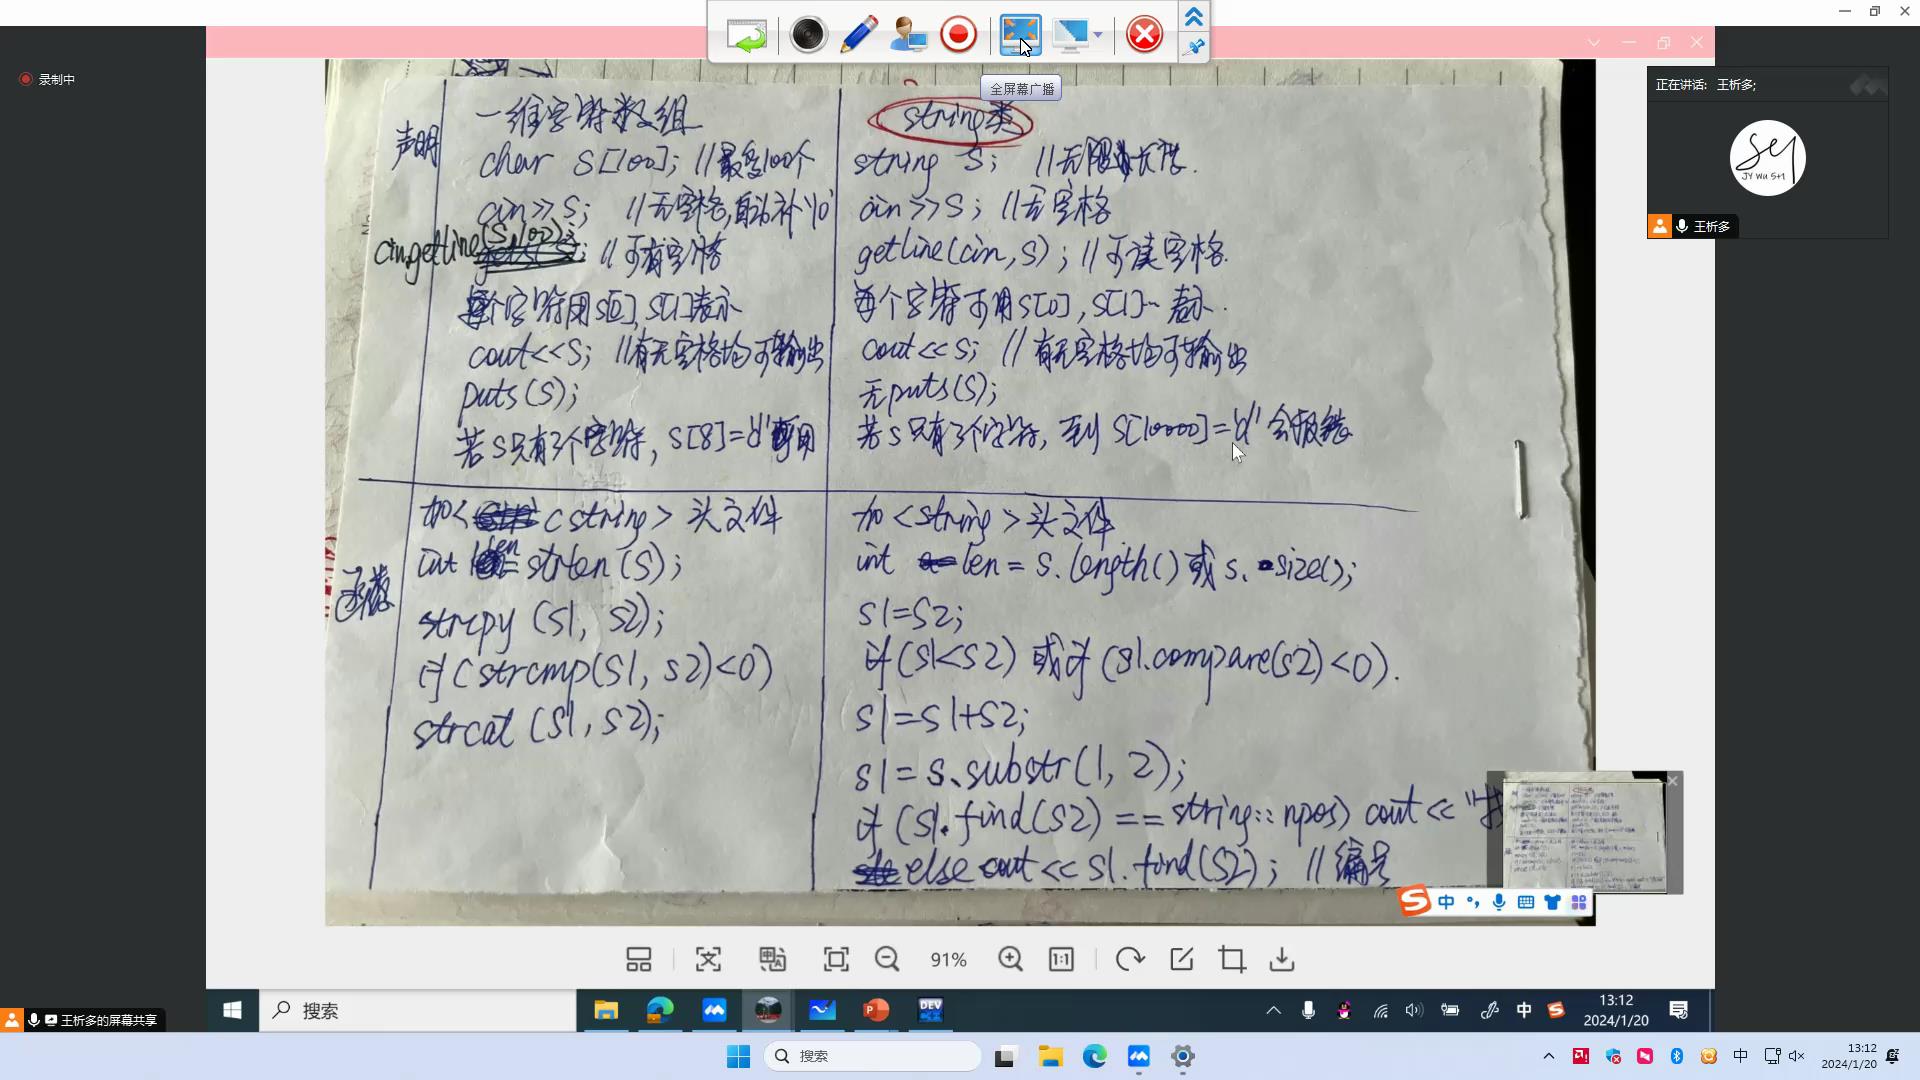 录制中
全屏幕广播
正在讲话: 王析多;
Sey
JY Wu S+1
王析多
声明
一维字符数组
char S[100]; //最多100个
cin>>S; //无空格,自动补'\0'
cin.getline(S,100); //可有空格
每个字符用S[0],S[1]表示
cout<<S; //有无空格均可输出
puts(S);
若S只有3个字符, S[8]='d'可用
string类
string S; //无限长度.
cin>>S; //无空格
getline(cin,S); //可读空格.
每个字符可用S[0],S[1]…表示.
cout<<S; //有无空格均可输出
无puts(S);
若S只有3个字符, 到S[10000]='d'会报错
函数
加<cstring>头文件
int len=strlen(S);
strcpy(S1, S2);
if(strcmp(S1, S2)<0)
strcat(S1, S2);
加<string>头文件
int len=s.length()或s.size();
S1=S2;
if(S1<S2)或if(S1.compare(S2)<0).
S1=S1+S2;
S1=S.substr(1,2);
if(S1.find(S2)==string::npos) cout<<"
else cout<<S1.find(S2); //编号
中
91%
1:1
王析多的屏幕共享
搜索
DEV
中
13:12
2024/1/20
搜索
中
13:12
2024/1/20